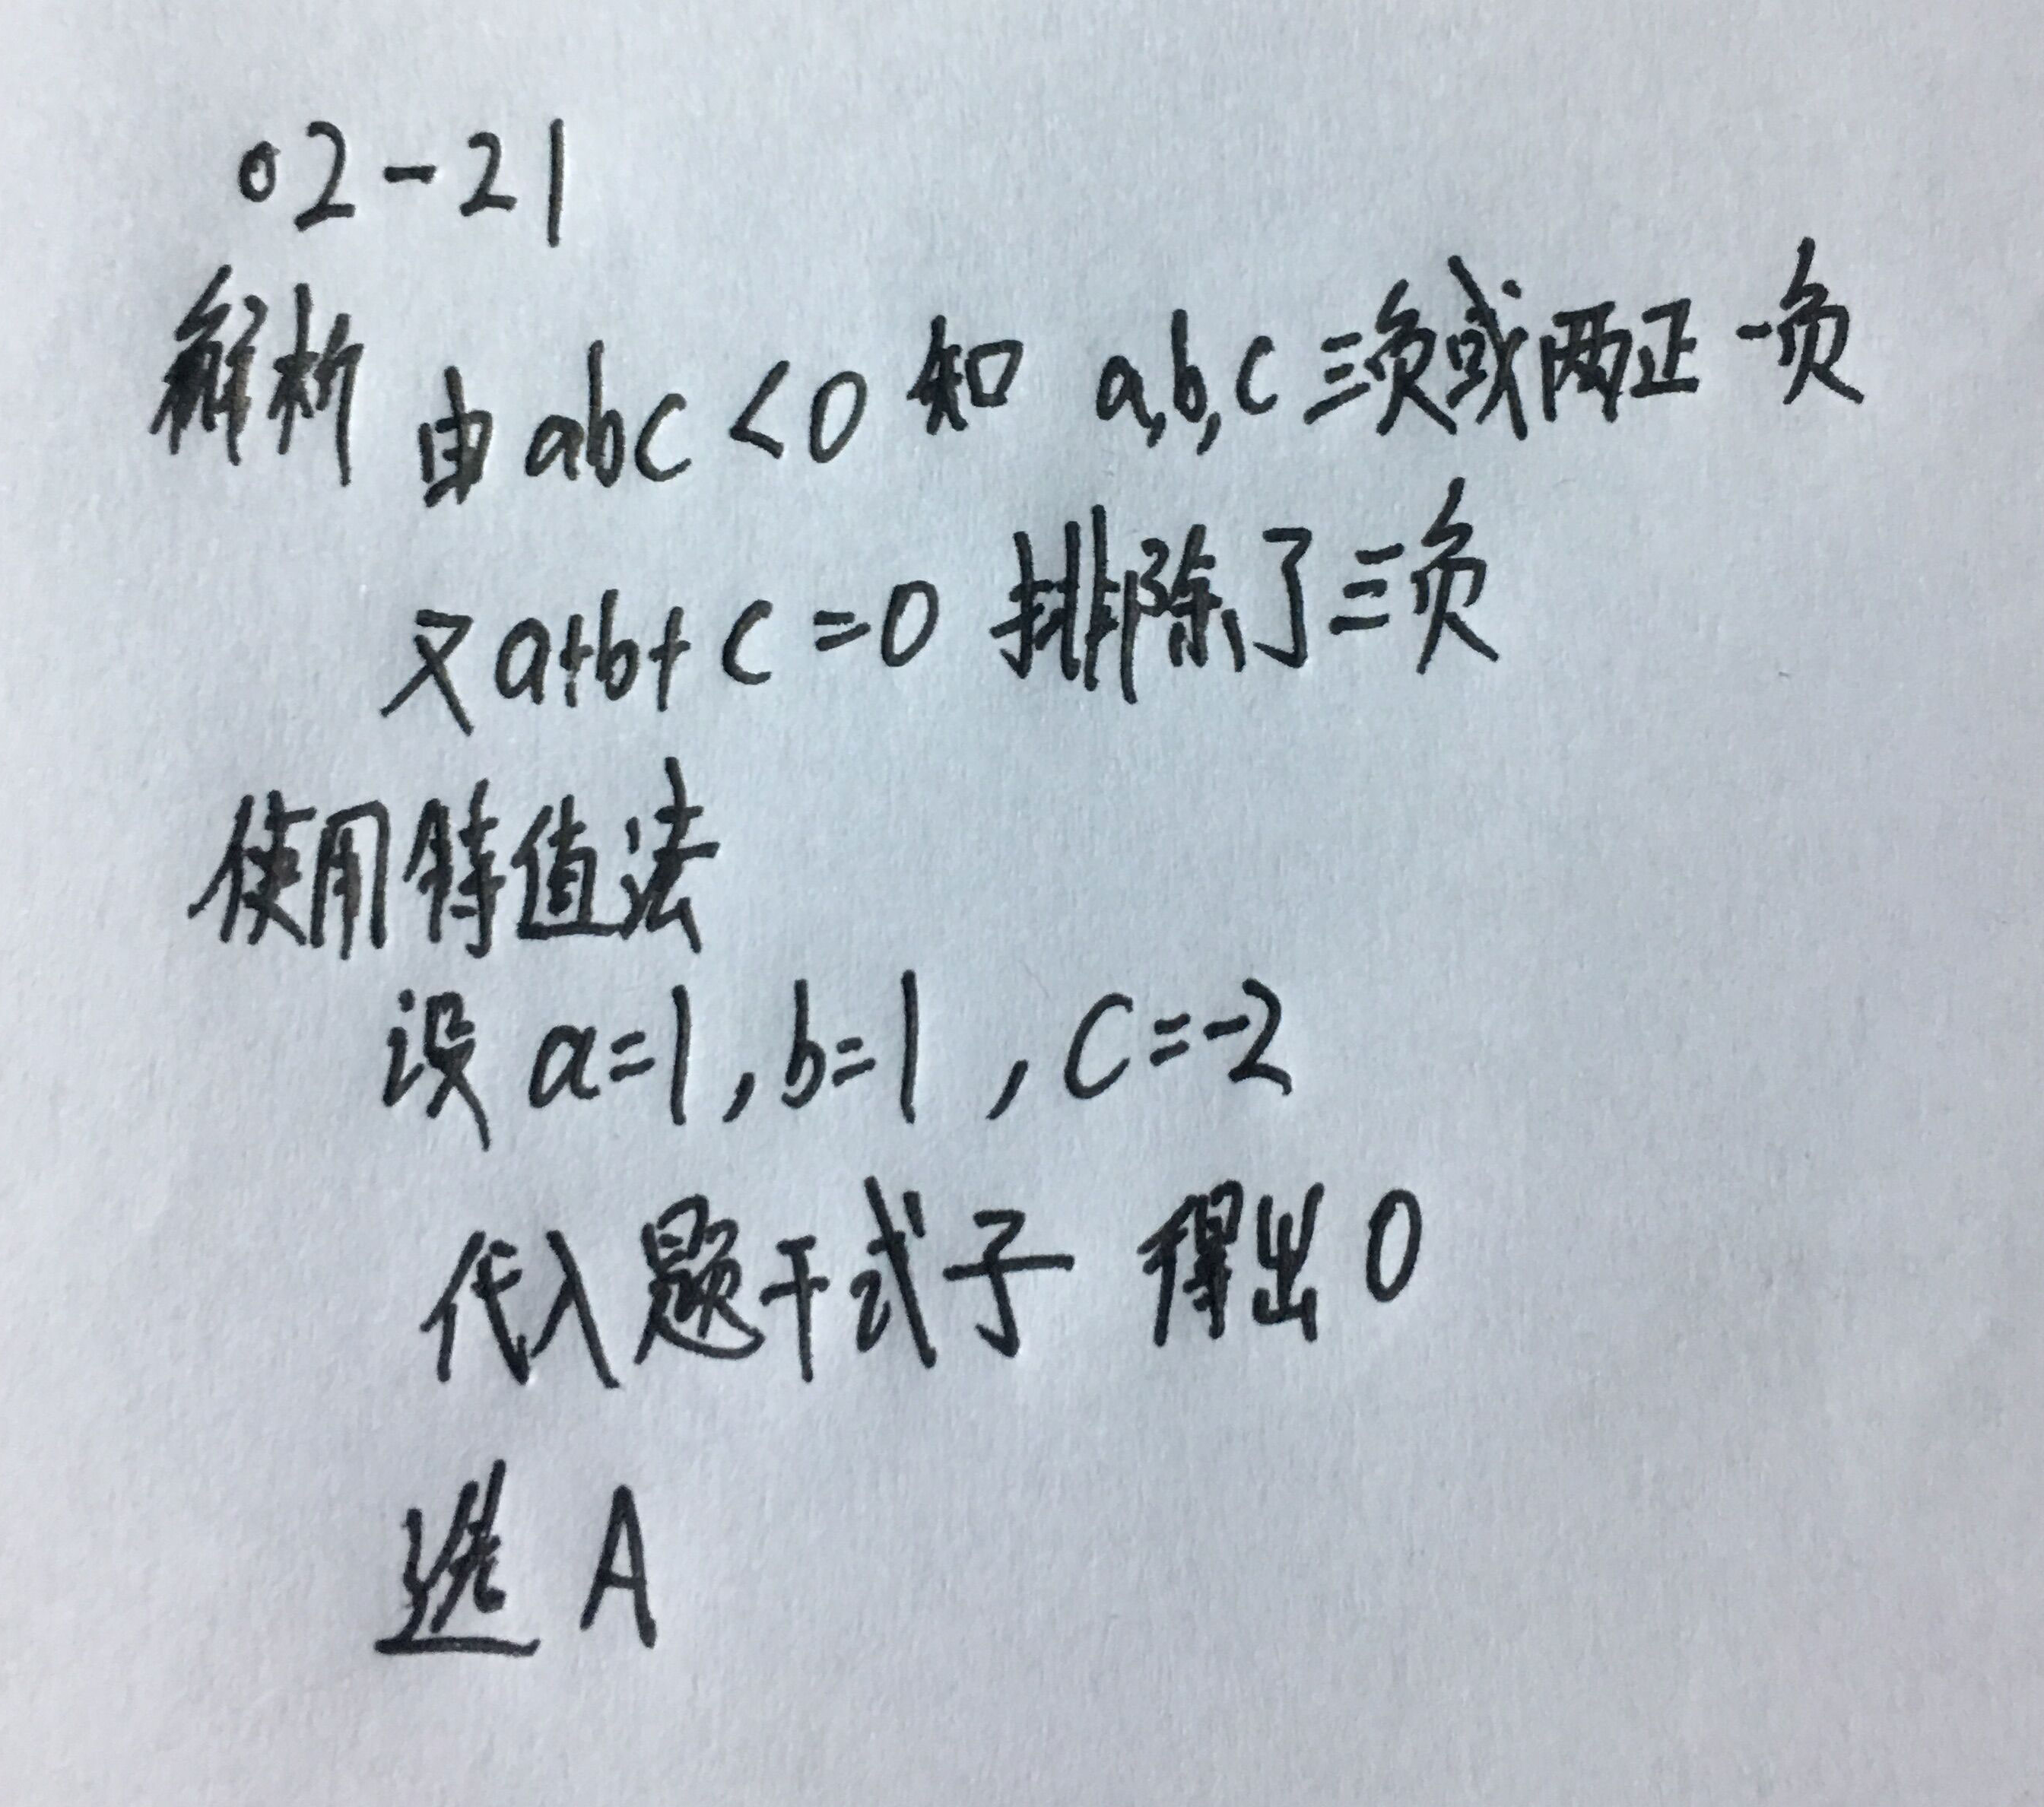 02-21
解析 由abc<0 知 a,b,c 三负或两正一负
又a+b+c=0 排除了三负
使用特值法
设 a=1,b=1,c=-2
代入题干式子 得出0
选 A